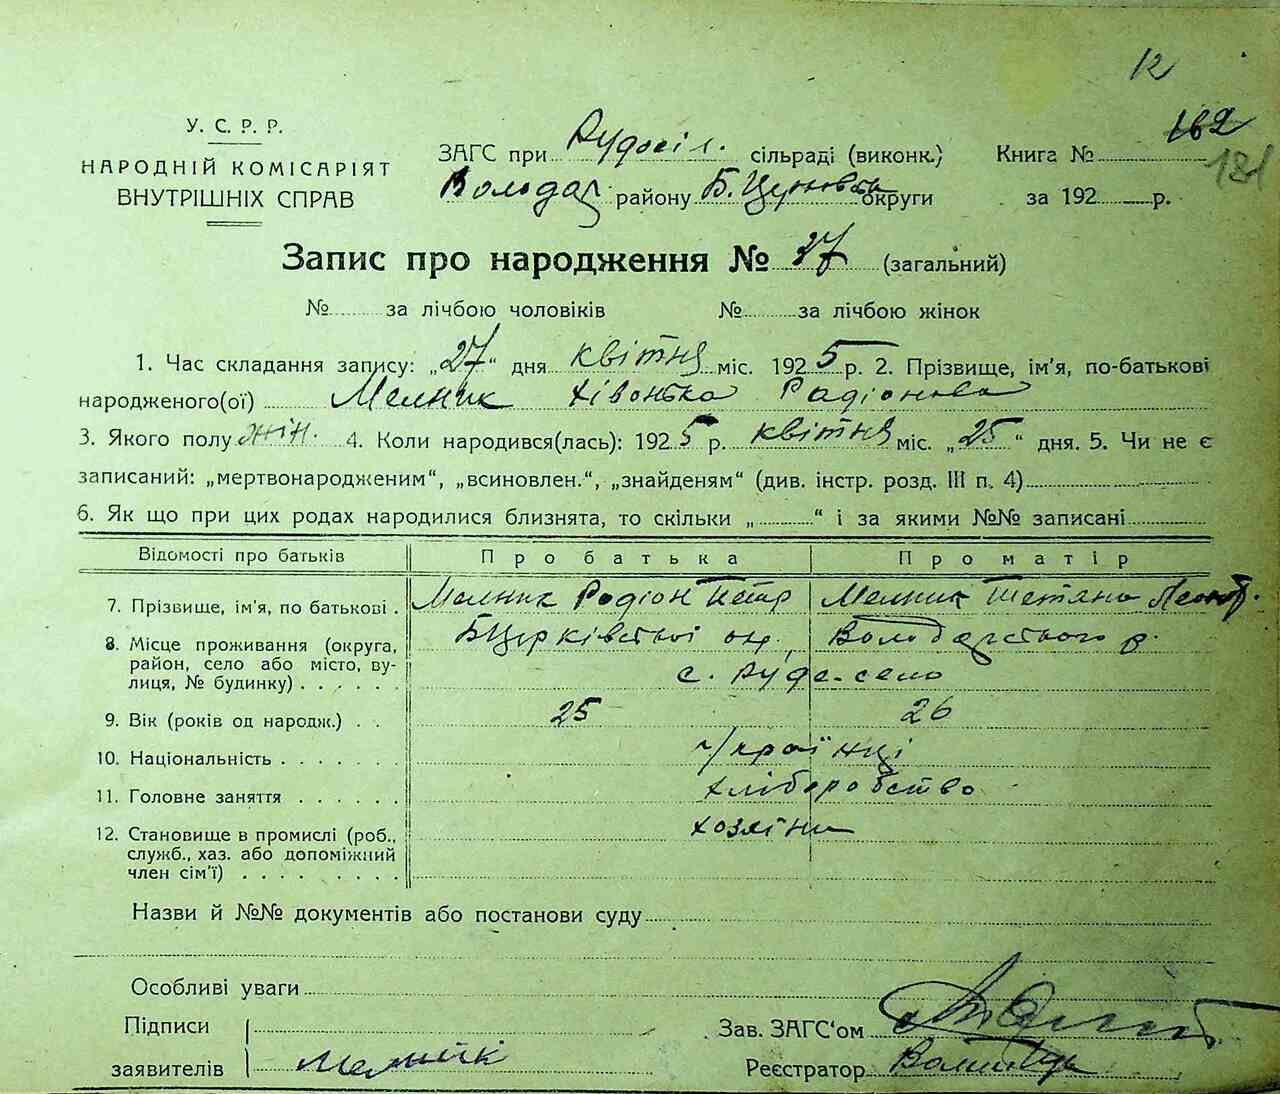 12
У. С. Р. Р.
НАРОДНІЙ КОМІСАРІЯТ
ВНУТРІШНІХ СПРАВ
ЗАГС при Рудосіл. сільраді (виконк.)
Володар. району Б. Церковск округи
Книга № 162
181
за 192 р.
Запис про народження № 37 (загальний)
№ за лічбою чоловіків № за лічбою жінок
1. Час складання запису: „27“ дня квітня міс. 1925 р. 2. Прізвище, ім'я, по-батькові
народженого(ої) Мелник Хівонька Радіонова
3. Якого полу жін. 4. Коли народився(лась): 1925 р. квітня міс. „25“ дня. 5. Чи не є
записаний: „мертвонародженим“, „всиновлен.“, „знайденям“ (див. інстр. розд. III п. 4)
6. Як що при цих родах народилися близнята, то скільки „ “ і за якими №№ записані
Відомості про батьків Про батька Про матір
7. Прізвище, ім'я, по батькові . Мелник Родіон Петр Мелник Тетяна
8. Місце проживання (округа, БЦерківської ок. Володарського р.
район, село або місто, ву- с. Руде-село
лиця, № будинку) . . . . . .
9. Вік (років од народж.) . . 25 26
10. Національність . . . . . . . українці
11. Головне заняття . . . . . . хліборобство
12. Становище в промислі (роб., хозяїни
служб., хаз. або допоміжний
член сім'ї) . . . . . . . .
Назви й №№ документів або постанови суду
Особливі уваги
Підписи
заявителів Мелник
Зав. ЗАГС'ом
Реєстратор